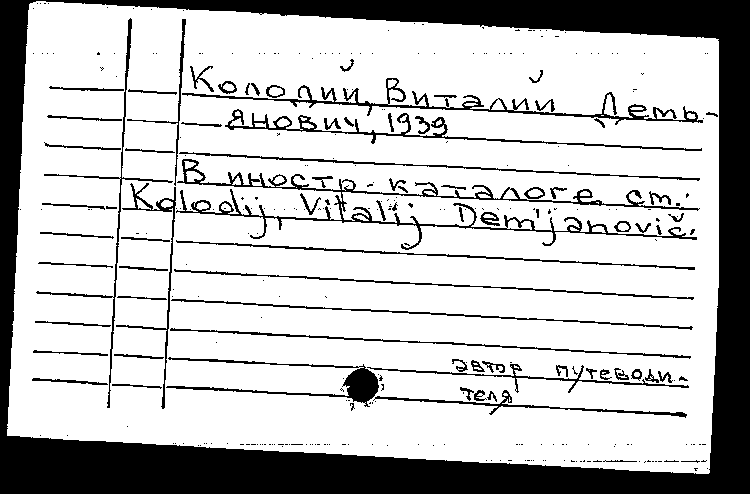 Колодий, Виталий Демь-
янович, 1939
В иностр. каталоге см.:
Kolodij, Vitalij Dem'janovič.
автор путеводи-
теля